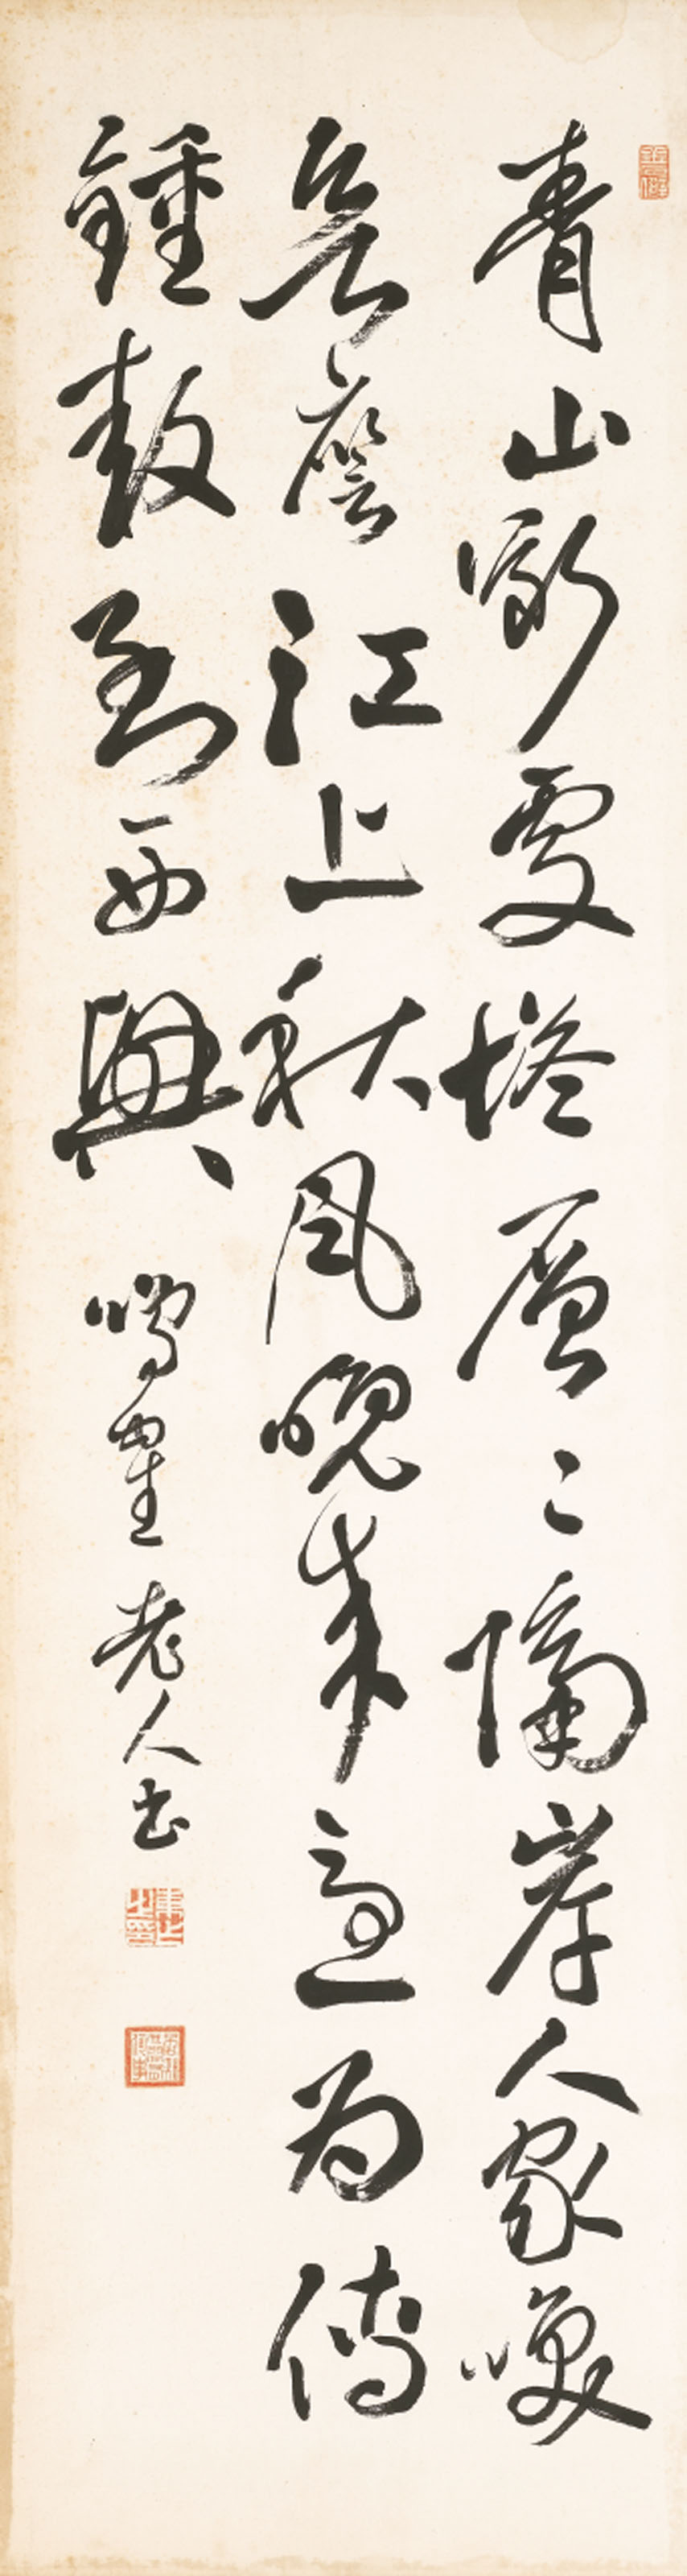 青山斷處塔層〻隔岸人家喚
欲譍江上秋風晚來急為傳
鍾鼓到西興 鳴鶴老人書